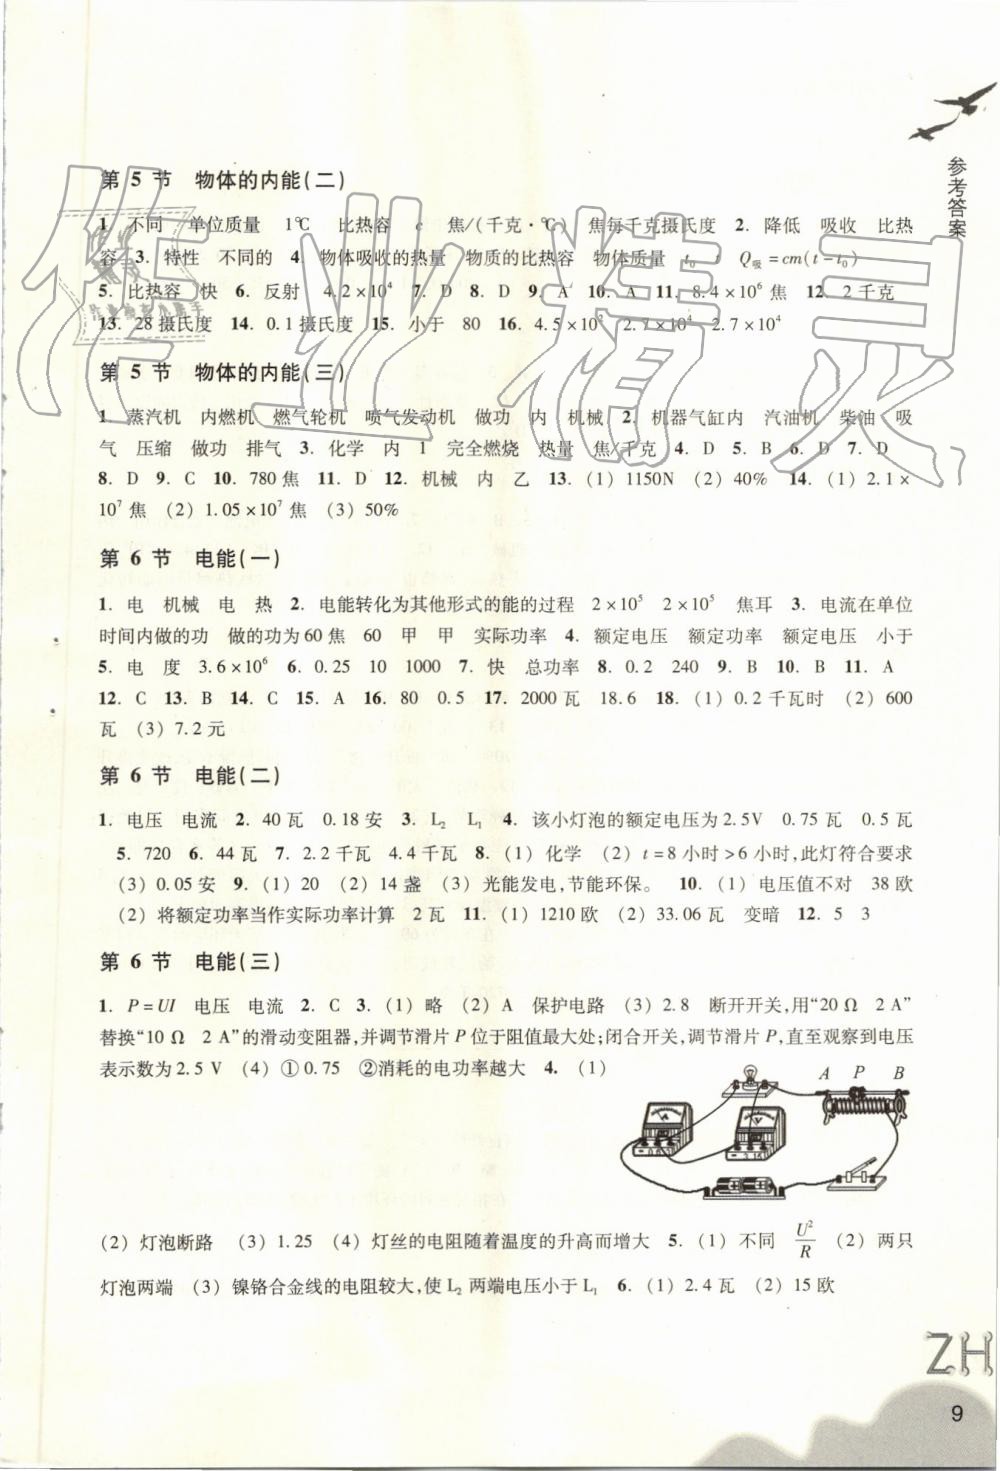 参考答案
第 5 节 物体的内能(二)
1. 不同 单位质量 1℃ 比热容 c 焦/(千克·℃) 焦每千克摄氏度 2. 降低 吸收 比热
容 3. 特性 不同的 4. 物体吸收的热量 物质的比热容 物体质量 t₀ t Q吸=cm(t-t₀)
5. 比热容 快 6. 反射 4.2×10⁴ 7. D 8. D 9. A 10. A 11. 8.4×10⁶ 焦 12. 2 千克
13. 28 摄氏度 14. 0.1 摄氏度 15. 小于 80 16. 4.5×10⁹ 2.7×10⁴ 2.7×10⁴
第 5 节 物体的内能(三)
1. 蒸汽机 内燃机 燃气轮机 喷气发动机 做功 内 机械 2. 机器气缸内 汽油机 柴油 吸
气 压缩 做功 排气 3. 化学 内 1 完全燃烧 热量 焦/千克 4. D 5. B 6. D 7. D
8. D 9. C 10. 780 焦 11. D 12. 机械 内 乙 13. (1) 1150N (2) 40% 14. (1) 2.1×
10⁷ 焦 (2) 1.05×10⁷ 焦 (3) 50%
第 6 节 电能(一)
1. 电 机械 电 热 2. 电能转化为其他形式的能的过程 2×10⁵ 2×10⁵ 焦耳 3. 电流在单位
时间内做的功 做的功为 60 焦 60 甲 甲 实际功率 4. 额定电压 额定功率 额定电压 小于
5. 电 度 3.6×10⁶ 6. 0.25 10 1000 7. 快 总功率 8. 0.2 240 9. B 10. B 11. A
12. C 13. B 14. C 15. A 16. 80 0.5 17. 2000 瓦 18.6 18. (1) 0.2 千瓦时 (2) 600
瓦 (3) 7.2 元
第 6 节 电能(二)
1. 电压 电流 2. 40 瓦 0.18 安 3. L₂ L₁ 4. 该小灯泡的额定电压为 2.5V 0.75 瓦 0.5 瓦
5. 720 6. 44 瓦 7. 2.2 千瓦 4.4 千瓦 8. (1) 化学 (2) t=8 小时>6 小时,此灯符合要求
(3) 0.05 安 9. (1) 20 (2) 14 盏 (3) 光能发电,节能环保。 10. (1) 电压值不对 38 欧
(2) 将额定功率当作实际功率计算 2 瓦 11. (1) 1210 欧 (2) 33.06 瓦 变暗 12. 5 3
第 6 节 电能(三)
1. P=UI 电压 电流 2. C 3. (1) 略 (2) A 保护电路 (3) 2.8 断开开关,用“20 Ω 2 A”
替换“10 Ω 2 A”的滑动变阻器,并调节滑片 P 位于阻值最大处;闭合开关,调节滑片 P,直至观察到电压
表示数为 2.5 V (4) ①0.75 ②消耗的电功率越大 4. (1)
A P B
(2) 灯泡断路 (3) 1.25 (4) 灯丝的电阻随着温度的升高而增大 5. (1) 不同 U²/R (2) 两只
灯泡两端 (3) 镍铬合金线的电阻较大,使 L₂ 两端电压小于 L₁ 6. (1) 2.4 瓦 (2) 15 欧
ZH
9
作业精灵